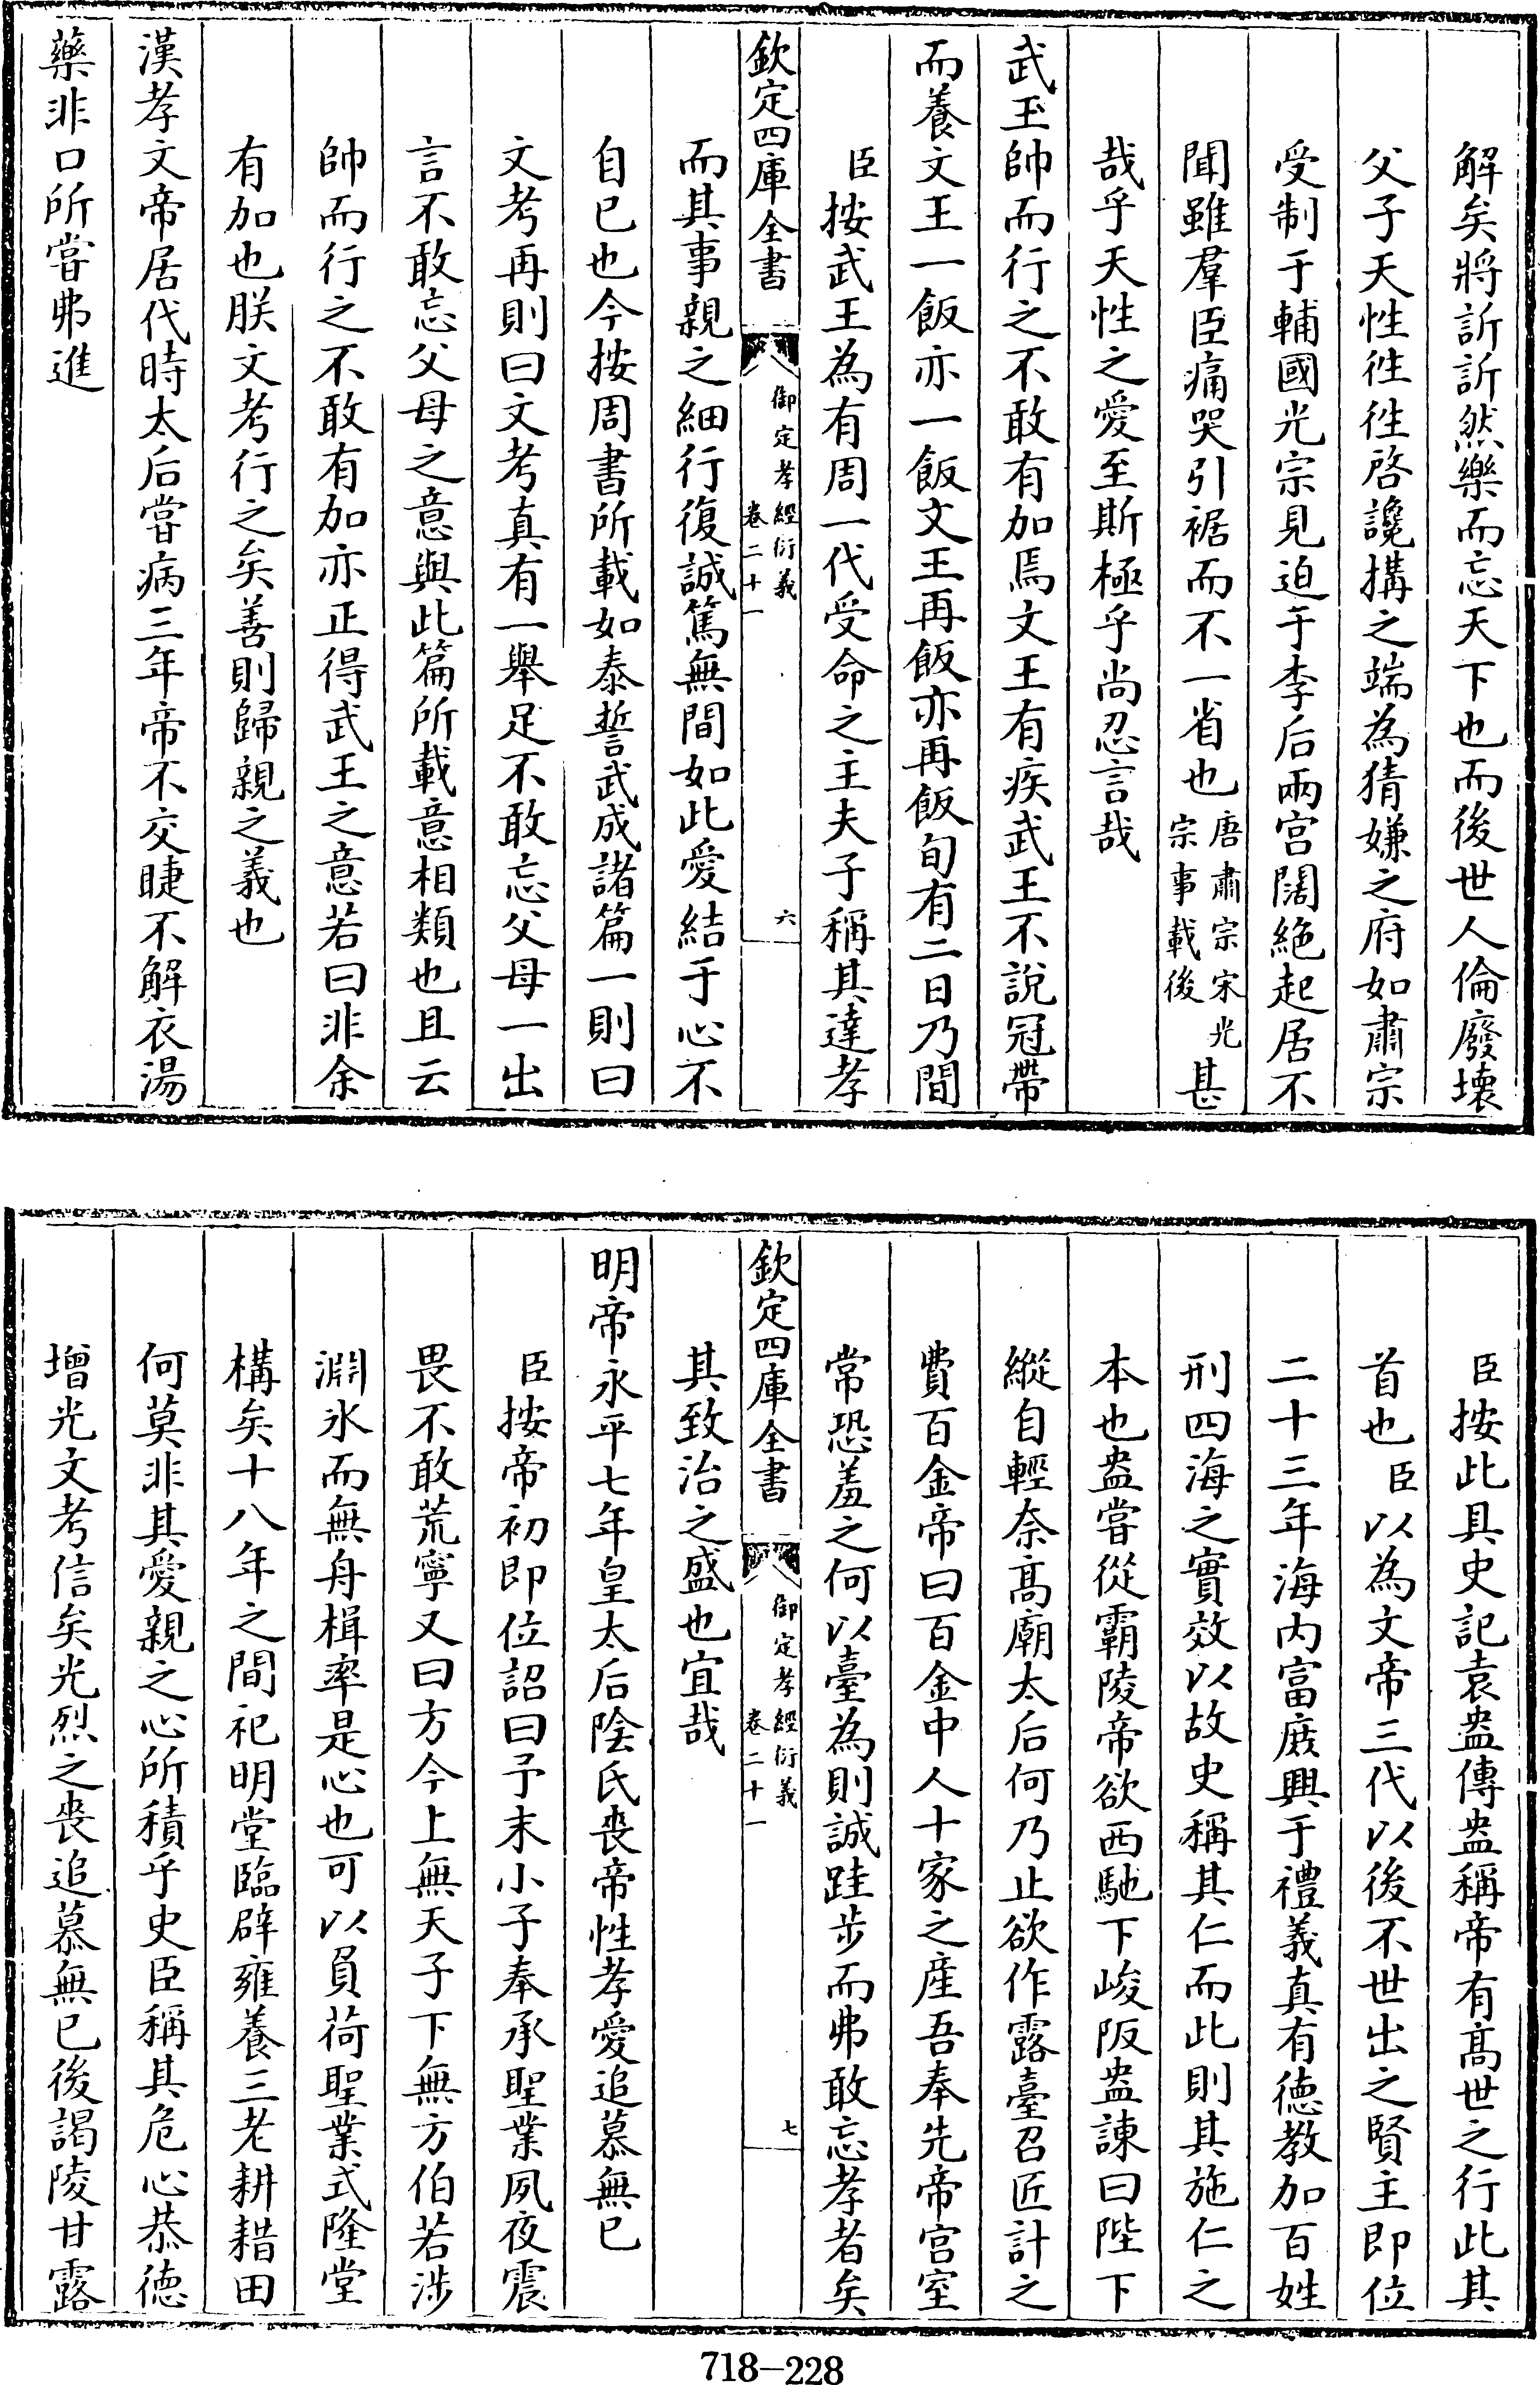 解矣將訢訢然樂而忘天下也而後世人倫廢壞
父子天性徃徃啓讒搆之端為猜嫌之府如肅宗
受制于輔國光宗見迫于李后兩宫闊絶起居不
聞雖羣臣痛哭引裾而不一省也唐肅宗宋光宗事載後甚
哉乎天性之愛至斯極乎尚忍言哉
武王帥而行之不敢有加焉文王有疾武王不說冠帶
而養文王一飯亦一飯文王再飯亦再飯旬有二日乃間
臣按武王為有周一代受命之主夫子稱其達孝
欽定四庫全書
御定孝經衍義
卷二十一
六
而其事親之細行復誠篤無間如此愛結于心不
自已也今按周書所載如泰誓武成諸篇一則曰
文考再則曰文考真有一舉足不敢忘父母一出
言不敢忘父母之意與此篇所載意相類也且云
帥而行之不敢有加亦正得武王之意若曰非余
有加也朕文考行之矣善則歸親之義也
漢孝文帝居代時太后嘗病三年帝不交睫不解衣湯
藥非口所嘗弗進
臣按此具史記袁盎傳盎稱帝有髙世之行此其
首也臣以為文帝三代以後不世出之賢主即位
二十三年海内富庻興于禮義真有德教加百姓
刑四海之實效以故史稱其仁而此則其施仁之
本也盎嘗從霸陵帝欲西馳下峻阪盎諫曰陛下
縱自輕奈髙廟太后何乃止欲作露臺召匠計之
費百金帝曰百金中人十家之産吾奉先帝宫室
常恐羞之何以臺為則誠跬步而弗敢忘孝者矣
欽定四庫全書
御定孝經衍義
卷二十一
七
其致治之盛也宜哉
明帝永平七年皇太后陰氏喪帝性孝愛追慕無已
臣按帝初即位詔曰予末小子奉承聖業夙夜震
畏不敢荒寧又曰方今上無天子下無方伯若涉
淵氷而無舟楫率是心也可以負荷聖業式隆堂
構矣十八年之間祀明堂臨辟雍養三老耕耤田
何莫非其愛親之心所積乎史臣稱其危心恭德
增光文考信矣光烈之喪追慕無已後謁陵甘露
718-228